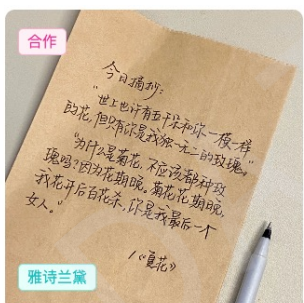 合作
今日摘抄：
"世上也许有五千朵和你一模一样
的花，但只有你是我独一无二的玫瑰。"
"为什么是菊花，不应该都种玫
瑰吗？因为花期晚。菊花花期晚，
我花开后百花杀，你是我最后一个
女人。"
/《夏花》
雅诗兰黛